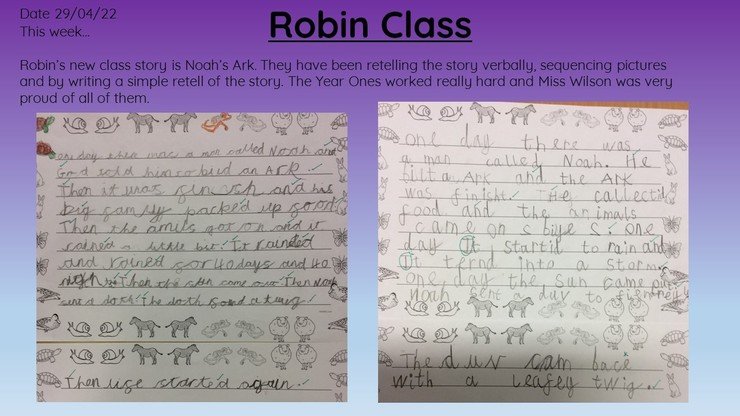 Date 29/04/22
This week...
Robin Class
Robin's new class story is Noah's Ark. They have been retelling the story verbally, sequencing pictures
and by writing a simple retell of the story. The Year Ones worked really hard and Miss Wilson was very
proud of all of them.
one day there was a man called Noah and
God told him to bild an Ark
Then it was and his
big famly packed up food
Then the got on and it
a little bit. It rainded
and rained for 40 days and 40
Then the sun came out Then Noah
sent a the found a twig.
Then started again.
one day there was
a man called Noah. He
bilt a Ark and the Ark
was finisht. He
food and the animals
came on one
day It startid to rain and
It ternd into a storm.
one day the sun came
Noah sent a duv to
The duv cam back
with a leafey twig.